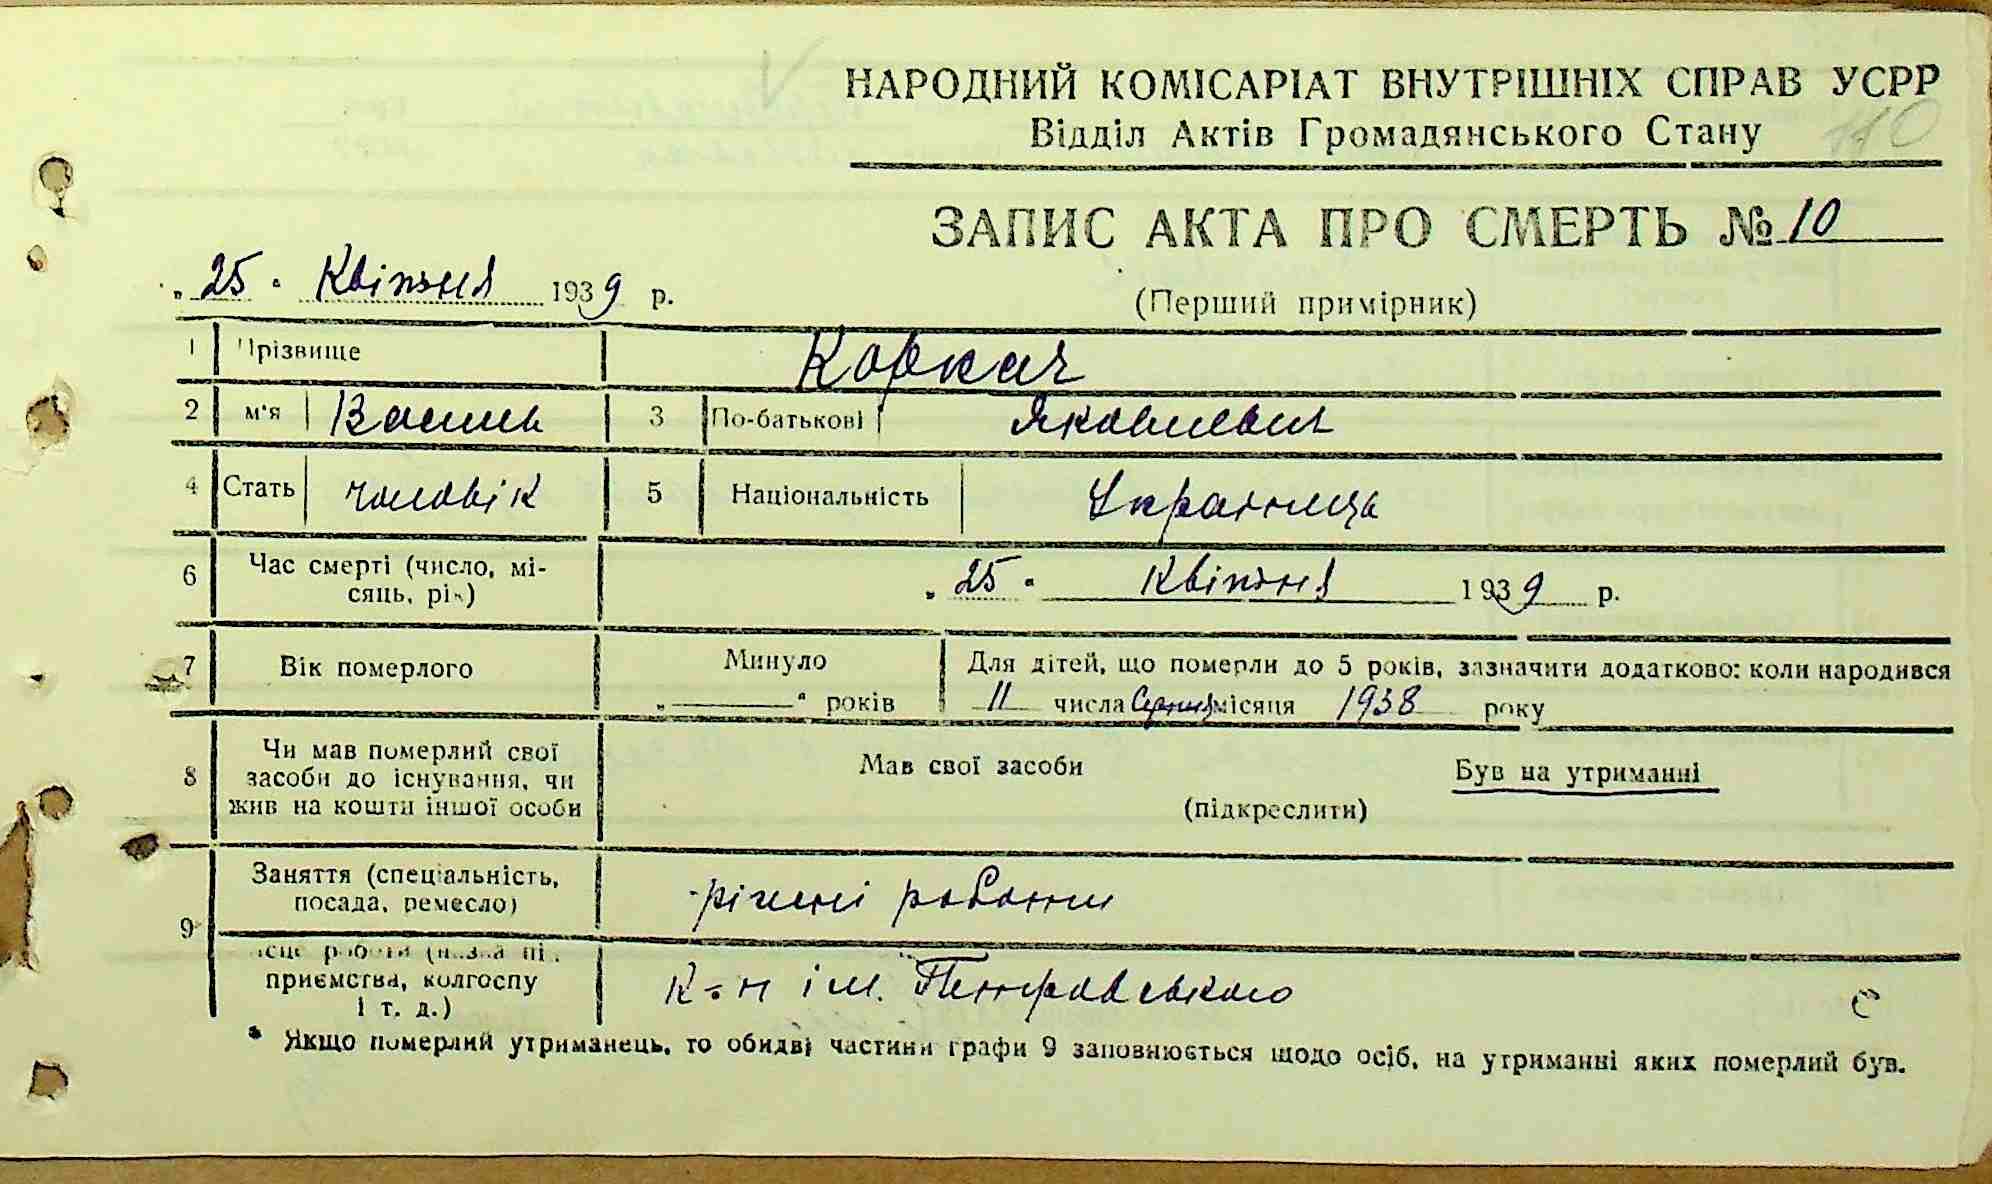 НАРОДНИЙ КОМІСАРІАТ ВНУТРІШНІХ СПРАВ УСРР
Відділ Актів Громадянського Стану
110
ЗАПИС АКТА ПРО СМЕРТЬ № 10
„ 25 " Квітня 1939 р.
(Перший примірник)
1 Прізвище Коркач
2 м'я Василь 3 По-батькові Якович
4 Стать чоловік 5 Національність Українець
6 Час смерті (число, мі-
сяць, рік) „ 25 " Квітня 1939 р.
7 Вік померлого Минуло Для дітей, що померли до 5 років, зазначити додатково: коли народився
„ — " років 11 числа Серпня місяця 1938 року
8 Чи мав померлий свої
засоби до існування, чи
жив на кошти іншої особи
Мав свої засоби Був на утриманні
(підкреслити)
9 Заняття (спеціальність,
посада, ремесло) різні роботи
ісце роботи (назва пі
приємства, колгоспу
і т. д.) К-п ім. Петровського
* Якщо померлий утриманець, то обидві частини графи 9 заповнюється щодо осіб, на утриманні яких померлий був.